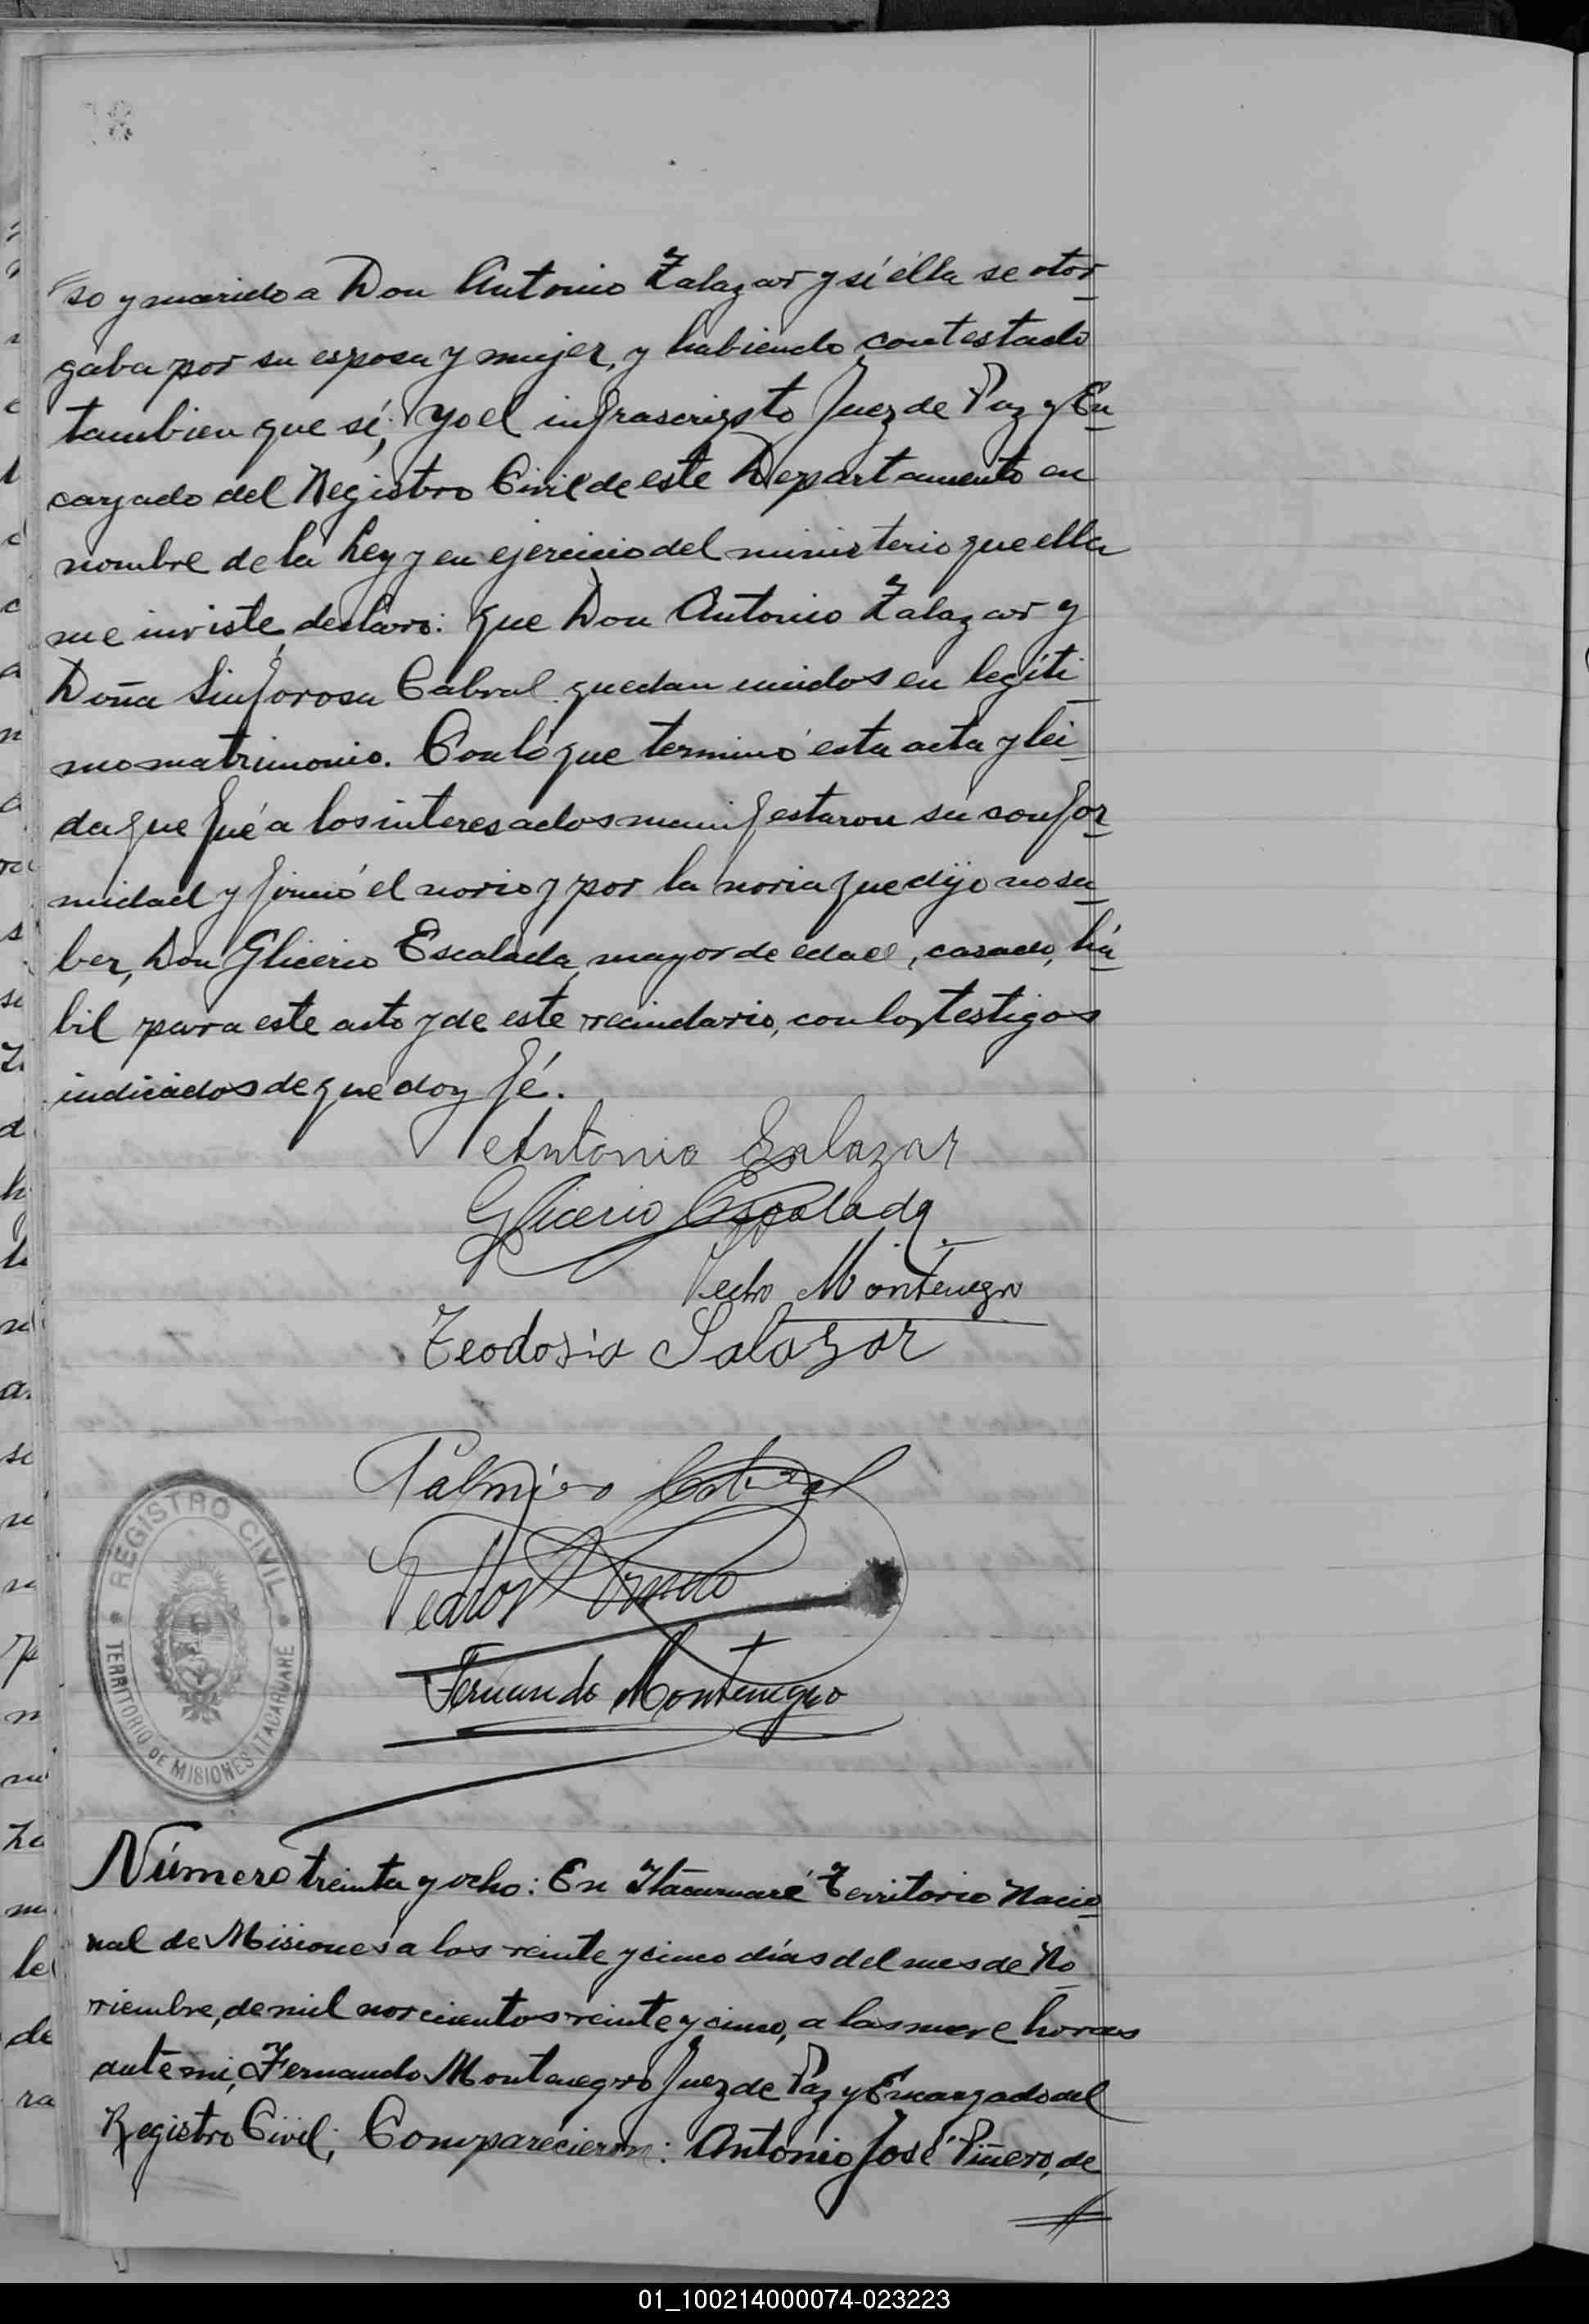 so y marido a Don Antonio Zalazar y si élla se otor
gaba por su esposa y mujer, y habiendo contestado
tambien que sí; Yo el infrascripto Juez de Paz y En
cargado del Registro Civil de este Departamento en
nombre de la Ley y en ejercicio del ministerio que ella
me inviste, declaro: que Don Antonio Zalazar y
Doña Sinforosa Cabral quedan unidos en legíti
mo matrimonio. Con lo que terminó esta acta y lei
da que fué a los interesados manifestaron su confor
midad y firmó el novio y por la novia que dijo no sa
ber, Don Glicerio Escalada, mayor de edad, casado, há
bil para este acto y de este vecindario, con los testigos
indicados de que doy fé.
Antonio Salazar
Glicerio Escalada
Pedro Montenegro
Teodosio Salazar
Palmiro Cabral
Pedro
Fernando Montenegro
REGISTRO CIVIL
TERRITORIO DE MISIONES ITACARUARE
Número treinta y ocho: En Itacaruaré Territorio Nacio
nal de Misiones a los veinte y cinco días del mes de No
viembre, de mil novecientos veinte y cinco, a las nueve horas
ante mi, Fernando Montenegro Juez de Paz y Encargado del
Registro Civil; Comparecieron: Antonio José Piñero, de
01_100214000074-023223